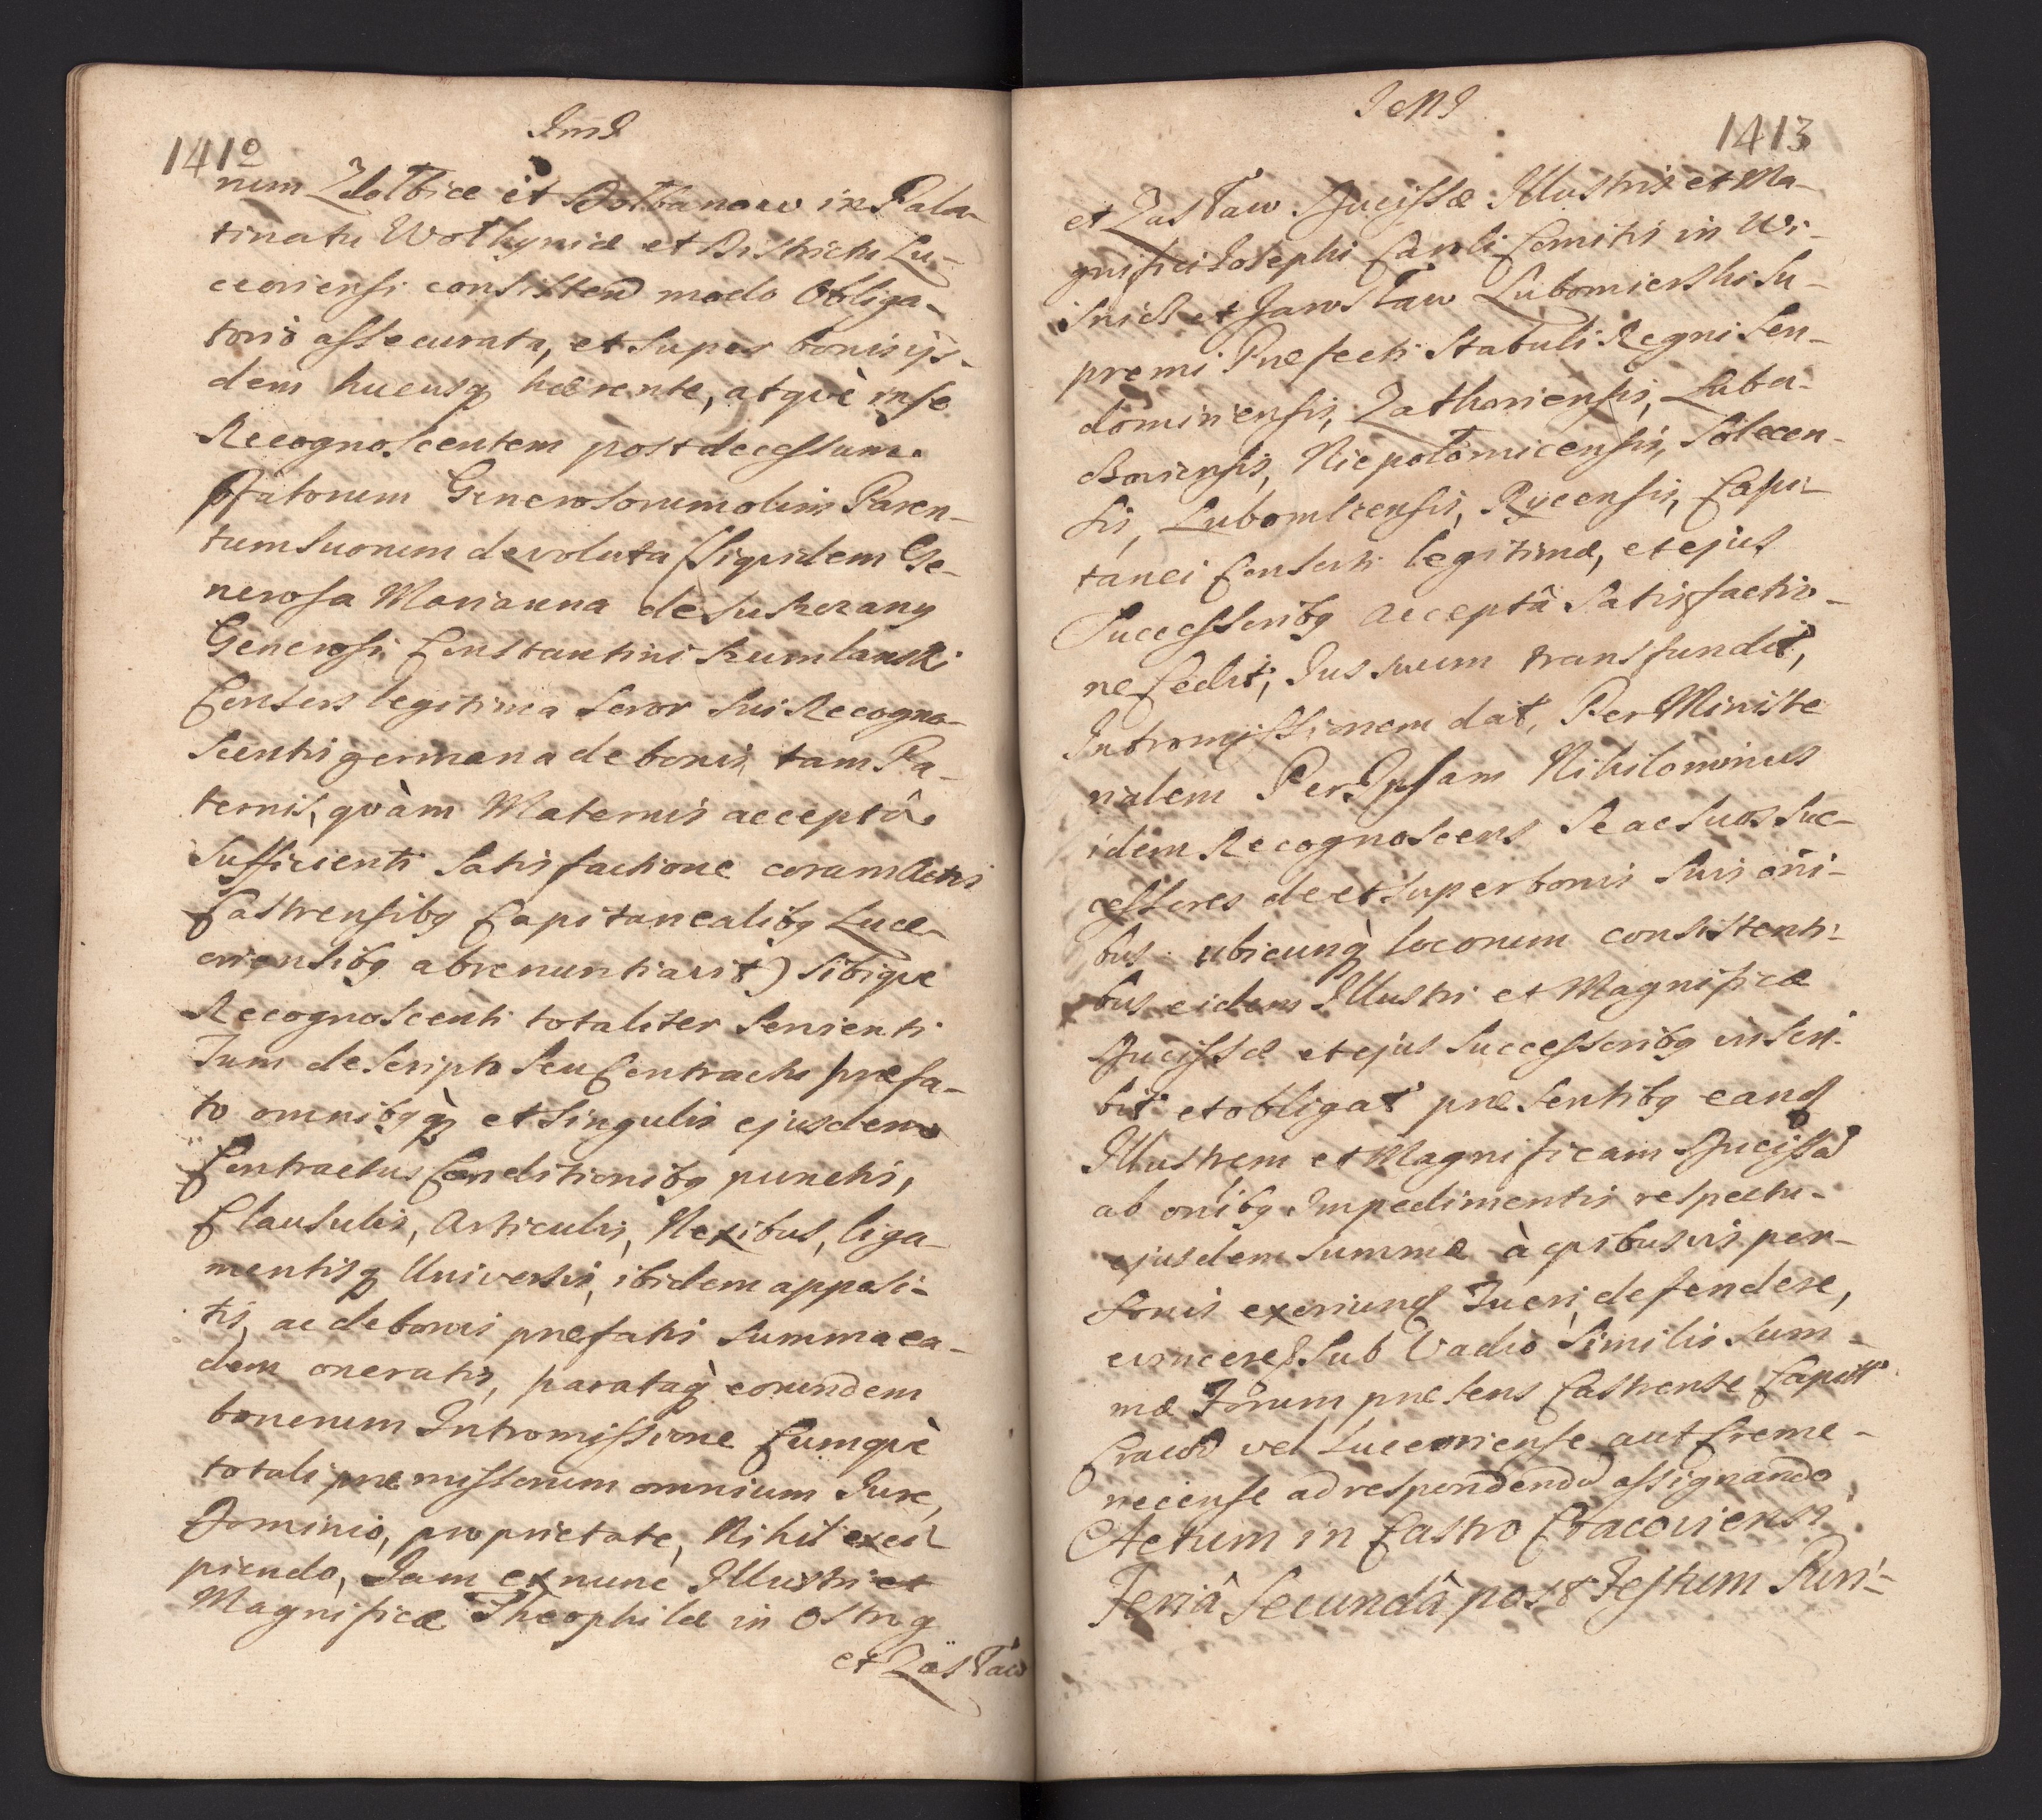 JmJ
1412
num Zdołbice et Dołbunow in Pala-
tinatu Wołhyniæ et Districtu Lu-
ceoriensi consisten modo Obliga-
torio assecurata, et super bonis ijs-
dem hucusq hærente, atquè in se
Recognoscentem post decessum
Pfatorum Generosorum olim Paren-
tum suorum devoluta (siquidem Ge-
nerosa Marianna de
Generosi Constantini
Consors legitima Soror sui Recogno-
scentis germana de bonis tam Pa-
ternis, quàm Maternis acceptâ
Sufficienti Satisfactione coram Actis
Castrensibq Capitanealibq Luce-
oriensibq abrenuntiavit) sibique
Recognoscenti totaliter servienti
Tum de scripto seu Contractu præfa-
to omnibqq et singulis ejusdem
Contractus Conditionibq punctis,
Clausulis, Articulis, Nexibus, liga-
mentisq Universis, ibidem apposi-
tis, ac de bonis præfatis summa ea-
dem oneratis, parataq eorundem
bonorum Intromissione Cumquè
totali præmissorum omnium Jure,
Dominio, proprietate, Nihil exci-
piendo, Jam ex nunc Illustri et
Magnificæ Theophilæ in Ostrog
et Zasław
JMJ
1413
et Zasław Ducissæ Illustris et Ma-
gnifici Josephi Caroli Comitis in Wi-
snicz et Jarosław Lubomierski Su-
premi Præfecti Stabuli Regni Sen-
domiriensis, Zathoriensis, Luba-
choviensis, Niepołomicensis, Solecen-
sis, Lubomlcensis, Rycensis, Capi-
tanei Consorti legitimæ, et ejus
Successoribq acceptâ Satisfactio-
ne Cedit, Jus suum transfundit,
Intromissionem dat, Per Ministe
rialem Per Ipsam Nihilominus
idem Recognoscens Se ac suos suc-
cessores de et super bonis suis oni-
bus ubicunq locorum consistenti-
bus eidem Illustri et Magnificæ
Ducissæ et ejus Successoribq inscri-
bit et obligat præsentibq eand
Illustrem et Magnificam Ducissã
ab onibq Impedimentis respectu
ejusdem Summæ à quibusvis per-
sonis exoriund Tueri, defendere,
evincereq sub Vadio Similis Sum-
mæ Forum præsens Castrense Capitt
Cracov vel Luceoriense aut Creme-
necense ad respondendũ assignando
Actum in Castro Cracoviensi
Feriâ Secundâ post Festum Puri-